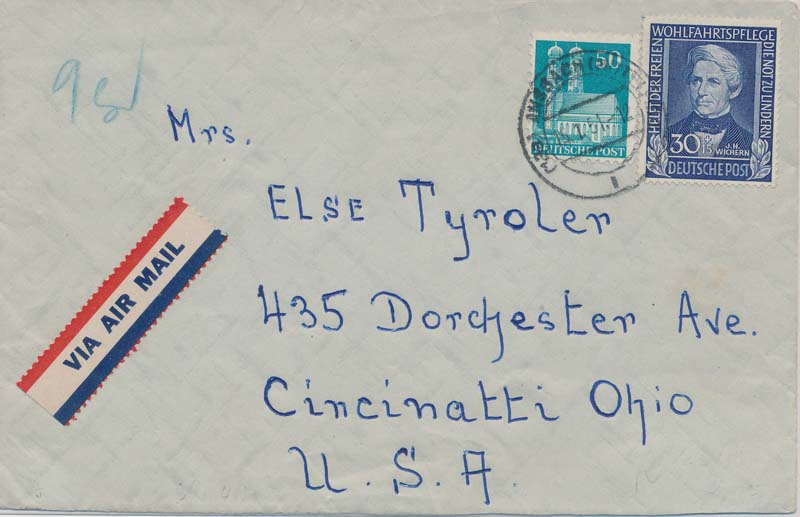 9 sd
50
DEUTSCHE POST
HELFT DER FREIEN
WOHLFAHRTSPFLEGE
DIE NOT ZU LINDERN
30 + 15
J.H. WICHERN
DEUTSCHE POST
Mrs.
ELSE Tyroler
435 Dorchester Ave.
Cincinatti Ohio
U. S. A.
VIA AIR MAIL